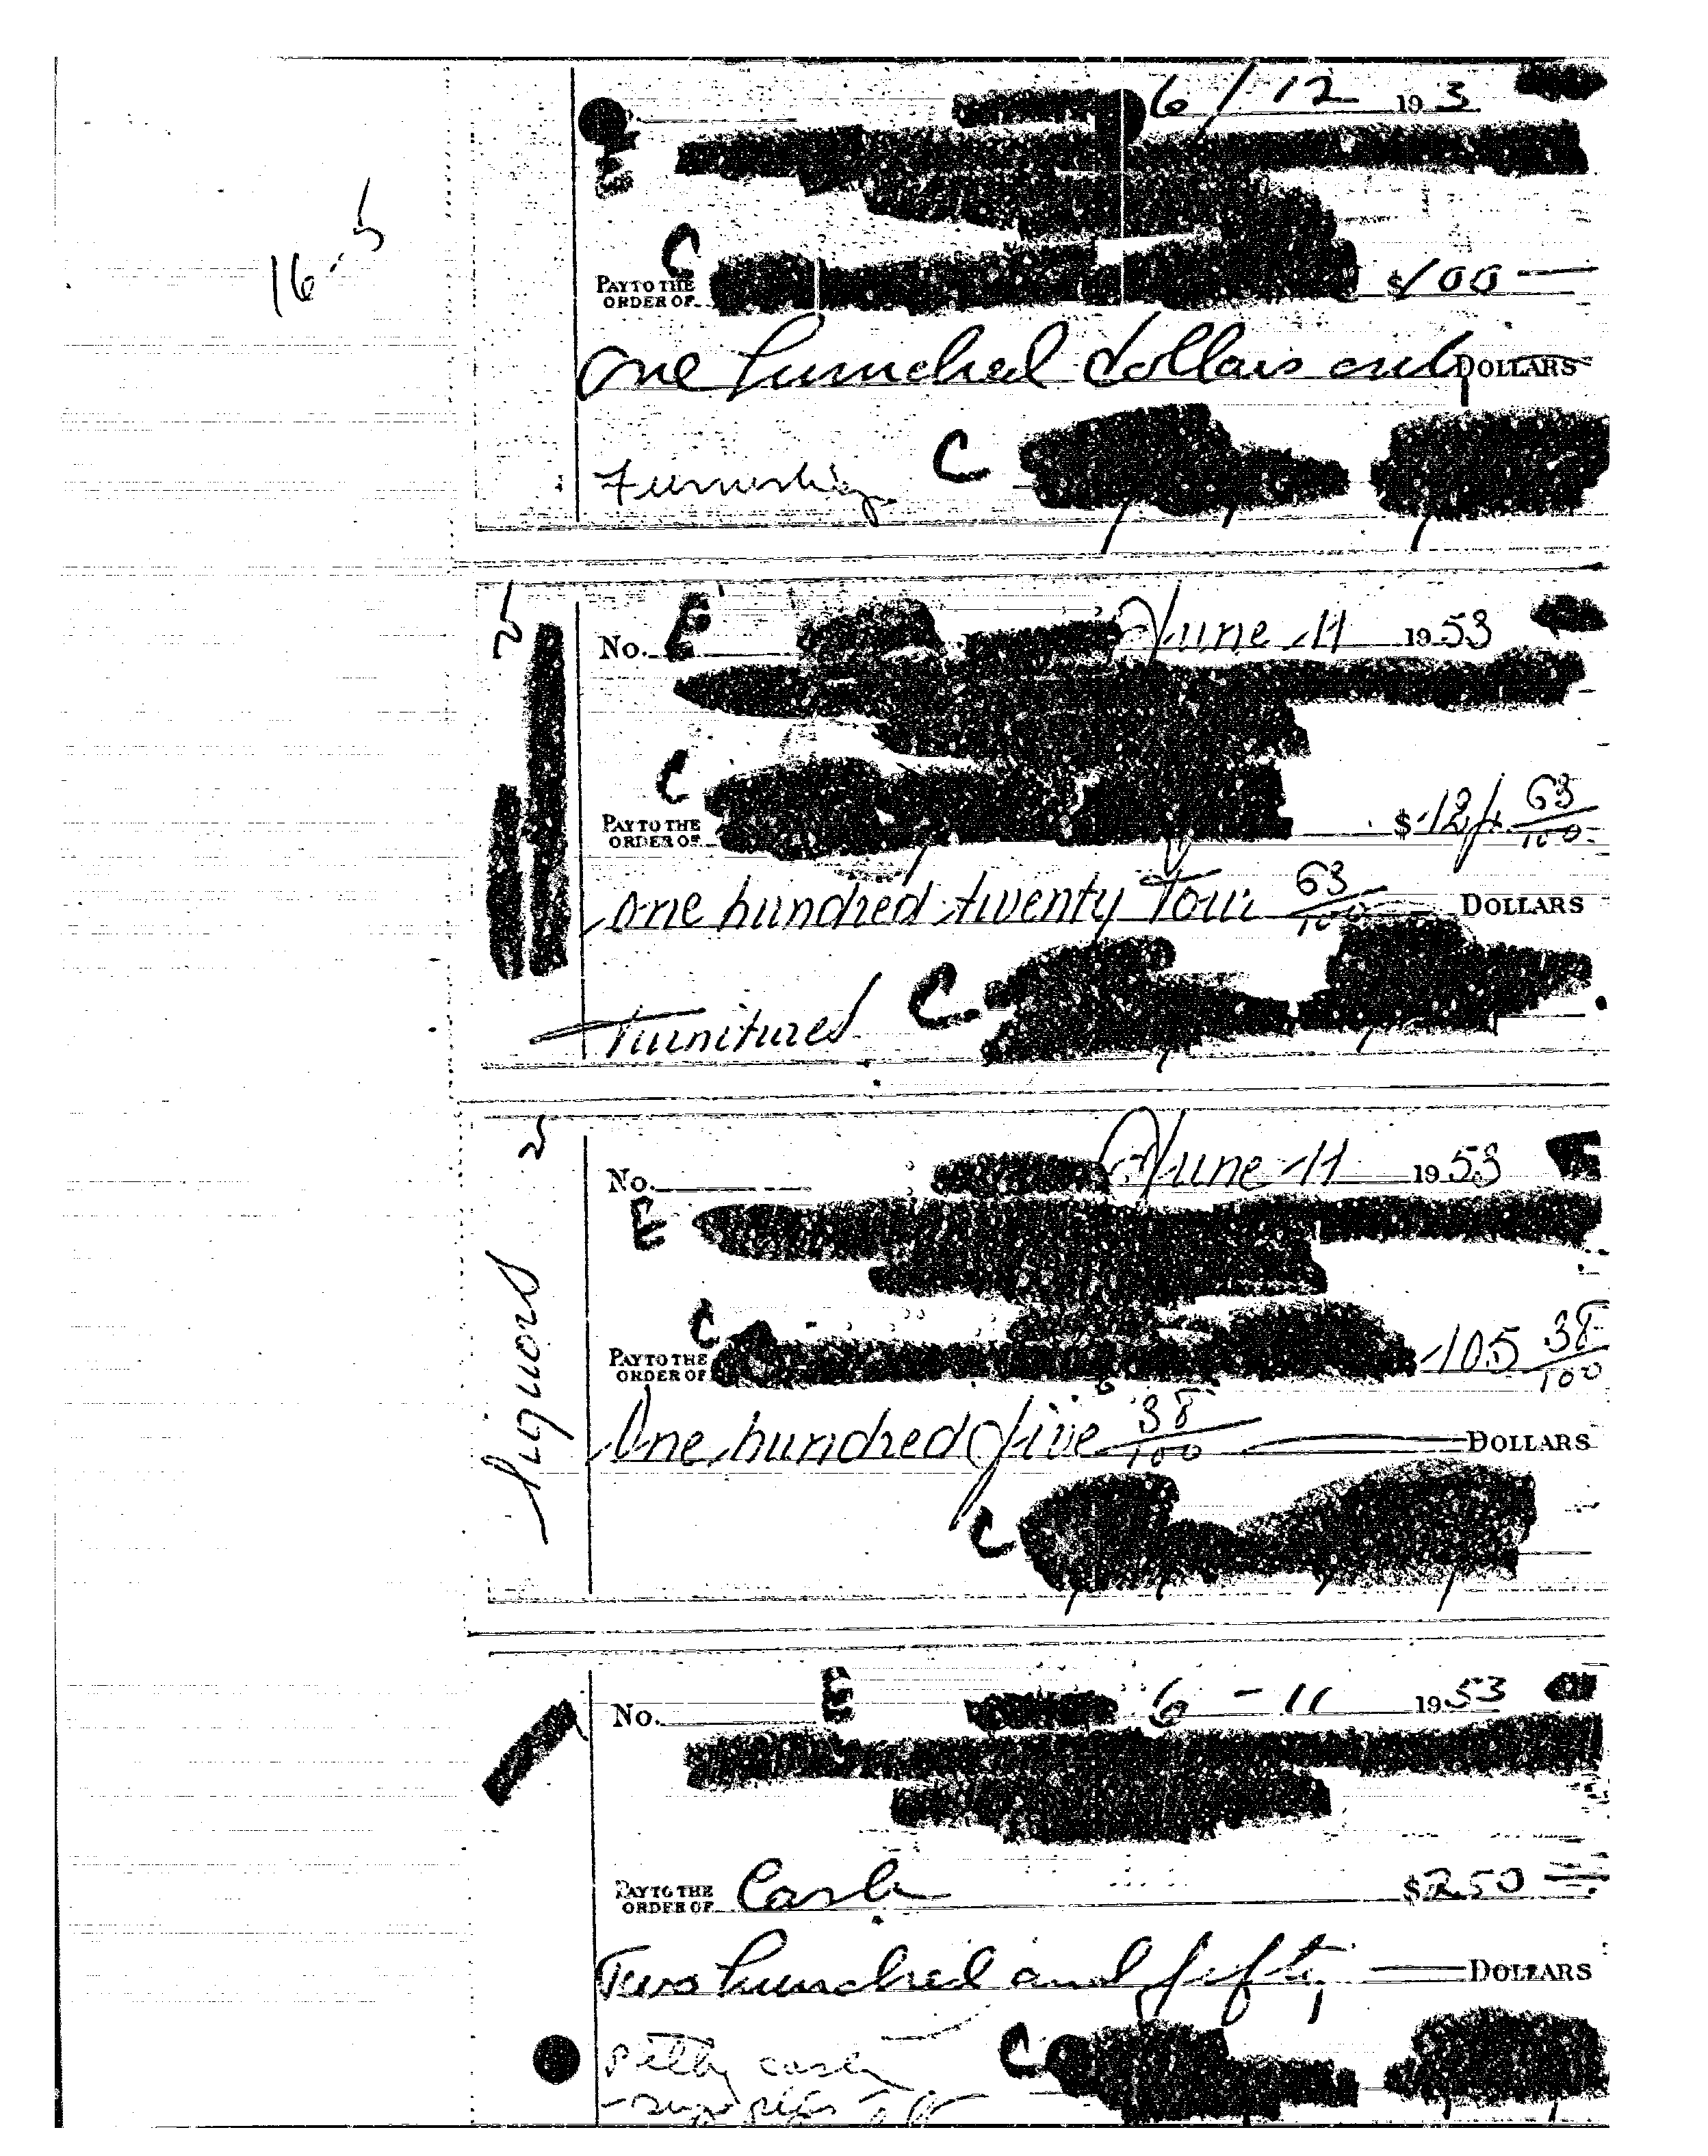 16-5
6/12 19 3
C
PAY TO THE
ORDER OF $100
One hundred dollars only DOLLARS
C
Furnishing
No. E June 11 19 53
C
PAY TO THE
ORDER OF $124 63/100
One hundred twenty four 63/100 DOLLARS
C
Furnitures
No. June 11 19 53
E
Liquors
C
PAY TO THE
ORDER OF 105 38/100
One hundred five 38/100 DOLLARS
C
No. E 6-11 19 53
PAY TO THE
ORDER OF Cash $250
Two hundred and fifty DOLLARS
C
Petty cash